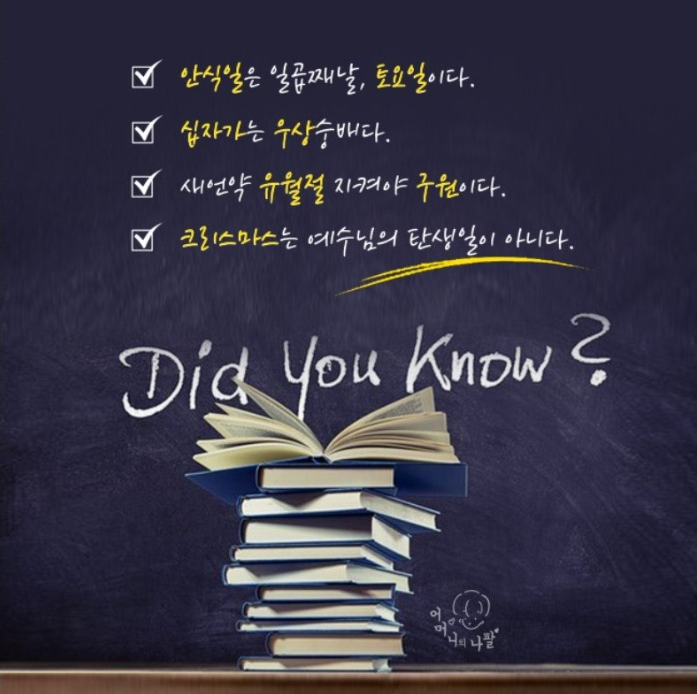 안식일은 일곱째날, 토요일이다.
십자가는 우상숭배다.
새언약 유월절 지켜야 구원이다.
크리스마스는 예수님의 탄생일이 아니다.
Did You Know?
어머니의 나팔